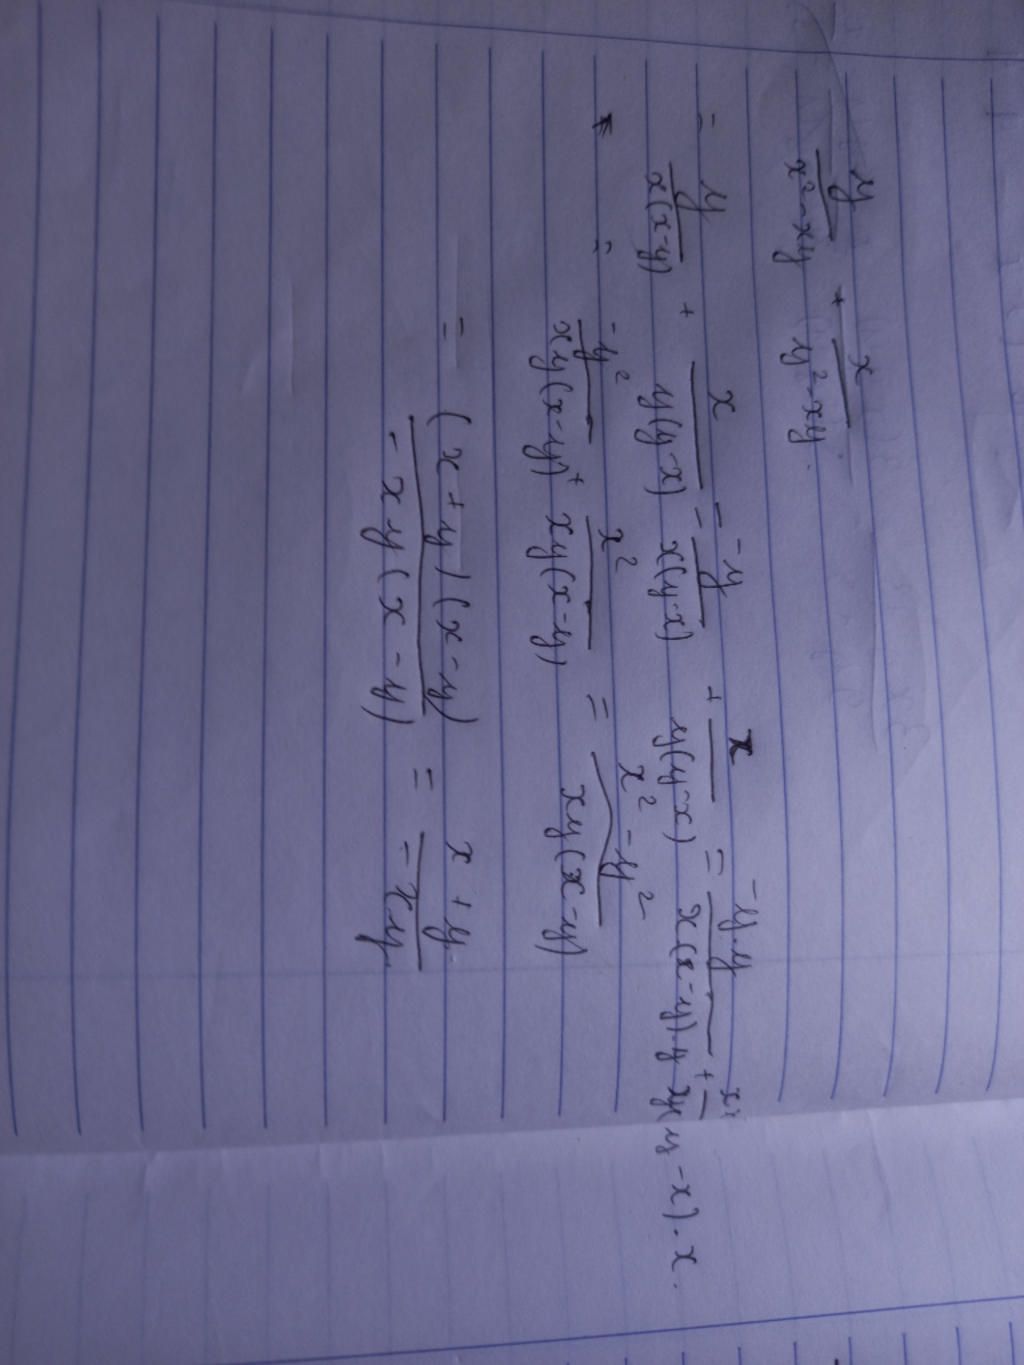 y/(x²-xy) + x/(y²-xy).
= y/(x(x-y)) + x/(y(y-x)) = -y/(x(y-x)) + x/(y(y-x)) = -y.y/(x(x-y)y) + x·/(xy(y-x).x.
= -y²/(xy(x-y)) + x²/(xy(x-y)) = x²-y²/(xy(x-y))
= (x+y)(x-y)/(-xy(x-y)) = x+y/(-xy)